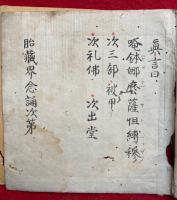 眞言曰
唵鉢娜麼薩怛縛穆
次三部 被甲
次礼佛 次出堂
胎藏界念誦次第